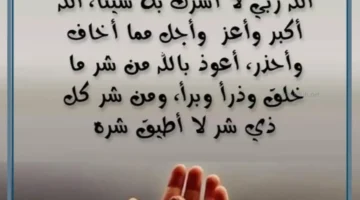 الله ربي لا أشرك به شيئا، الله
أكبر وأعز وأجل مما أخاف
وأحذر، أعوذ بالله من شر ما
خلق وذرأ وبرأ، ومن شر كل
ذي شر لا أطيق شره